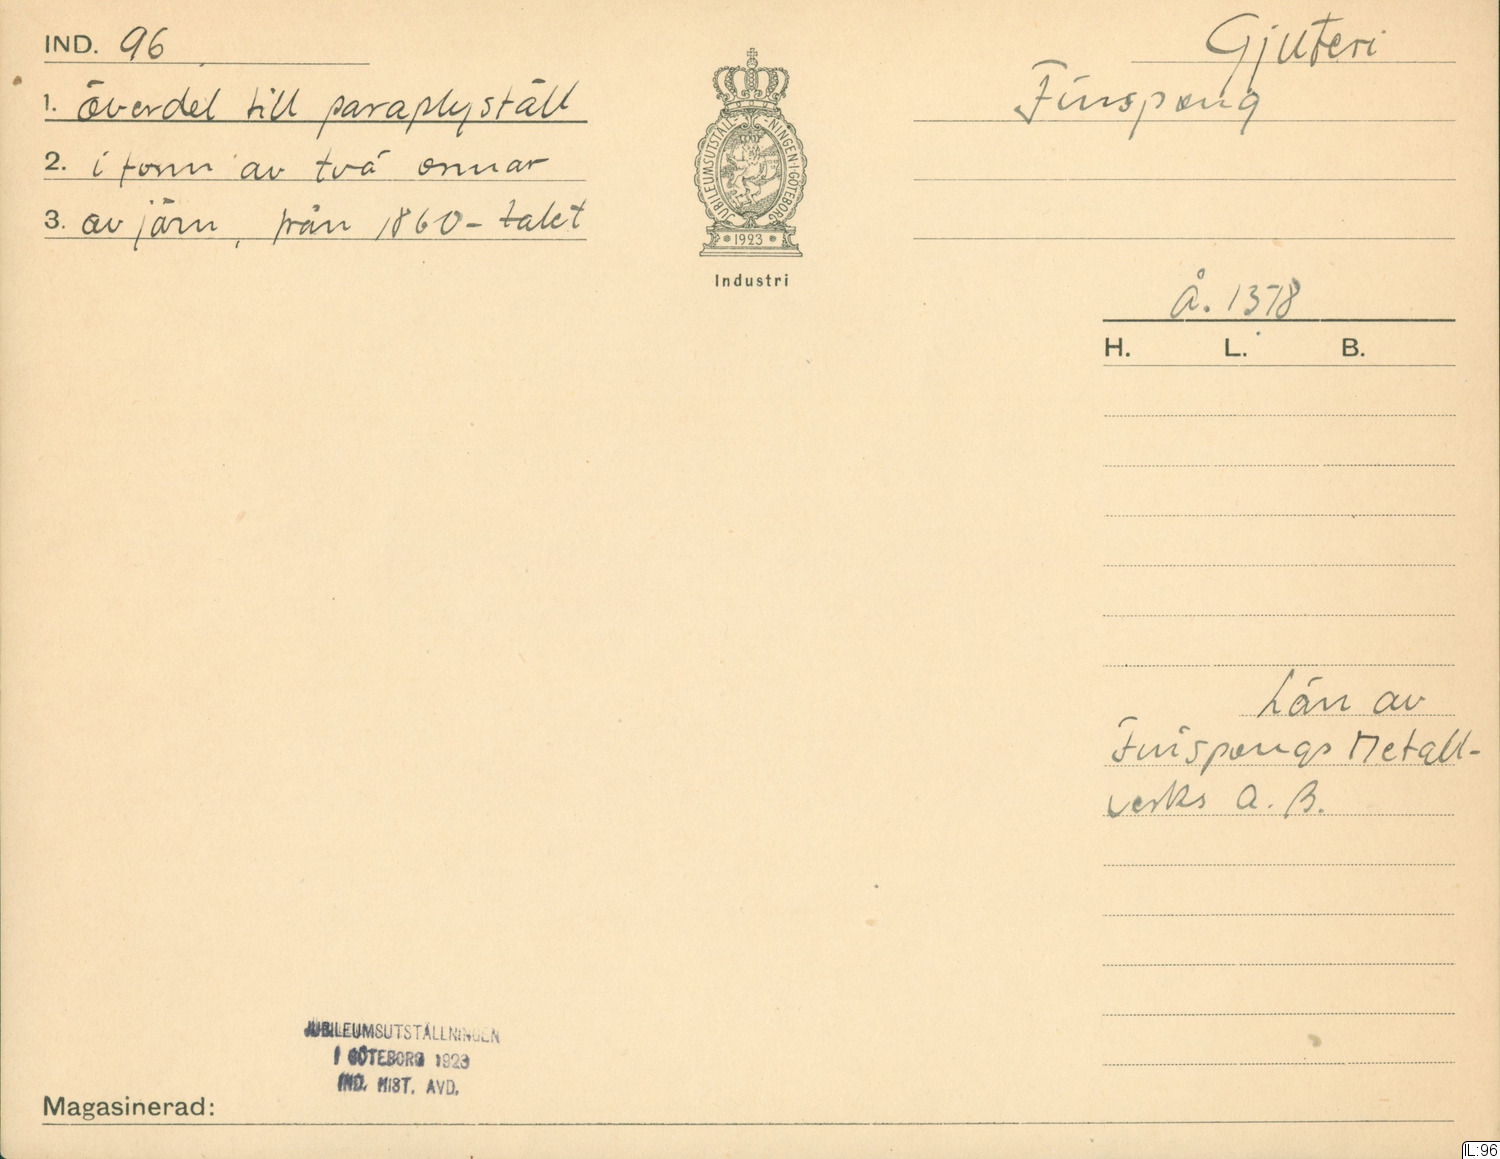 IND. 96
Gjuteri
1. överdel till paraplyställ
Finspong
2. i form av två ormar
3. av järn, från 1860-talet
JUBILEUMSUTSTÄLL-NINGEN·I·GÖTEBORG
1923
Industri
Å. 1378
H. L. B.
Lån av
Finspongs Metall-
verks A.B.
JUBILEUMSUTSTÄLLNINGEN
I GÖTEBORG 1923
IND. HIST. AVD.
Magasinerad:
IL:96